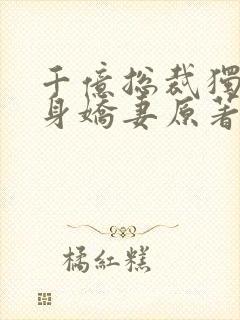 千億總裁獨
身嬌妻原著
橘紅糕